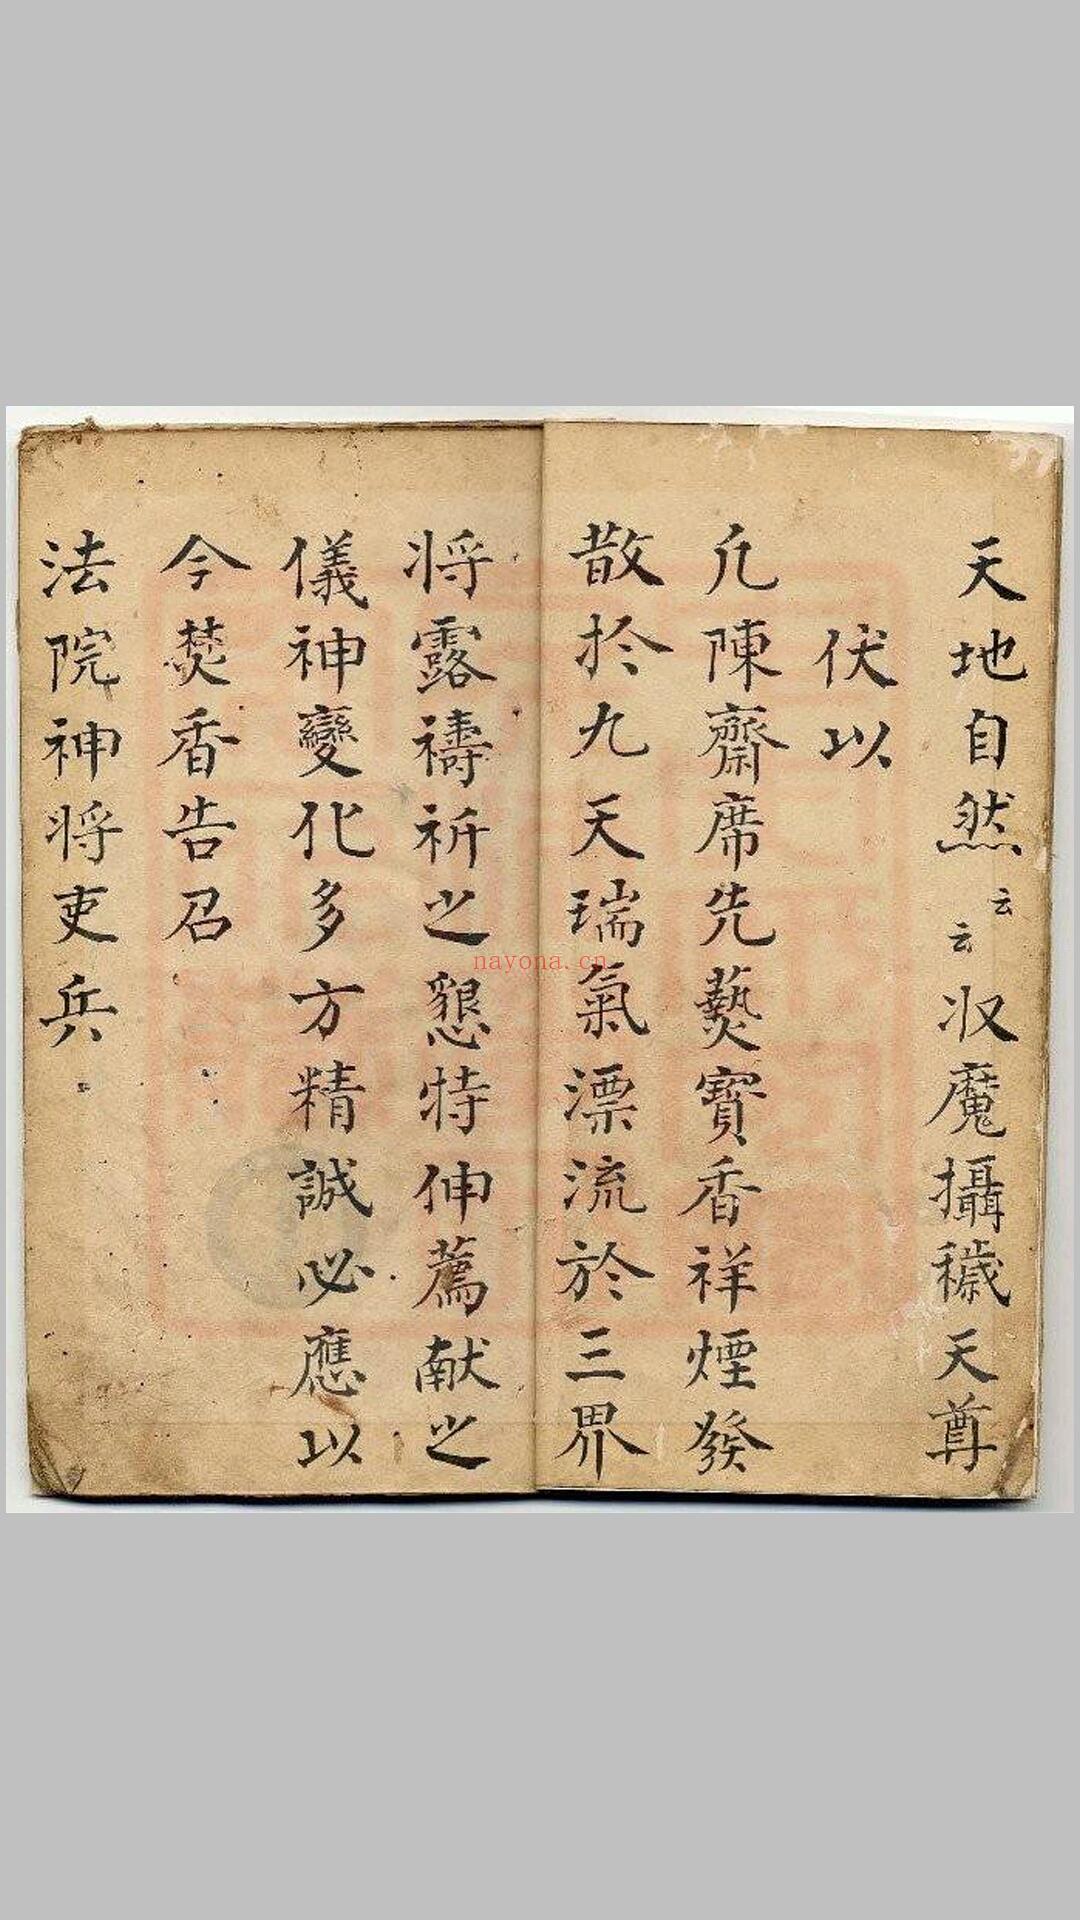 天地自然云云収魔攝穢天尊
伏以
凢陳齋席先爇寶香祥煙發
散扵九天瑞氣漂流於三界
将露禱祈之懇特伸薦献之
儀神變化多方精誠必應以
今焚香告召
法院神将吏兵
nayona.cn